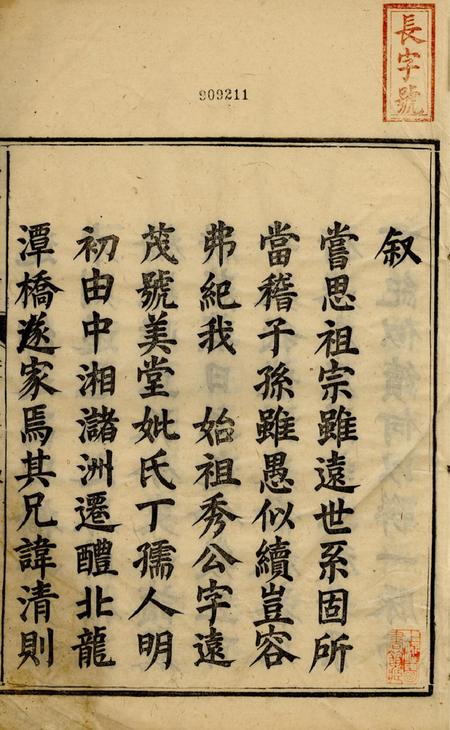 長字號
909211
叙
嘗思祖宗雖遠世系固所
當稽子孫雖愚似續豈容
弗紀我　始祖秀公字遠
茂號美堂妣氏丁孺人明
初由中湘瀦洲遷醴北龍
潭橋遂家焉其兄諱清則